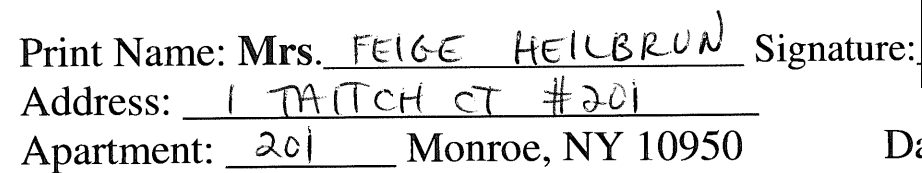 Print Name: Mrs. FEIGE HEILBRUN Signature:
Address: 1 TAITCH CT #201
Apartment: 201 Monroe, NY 10950 Da